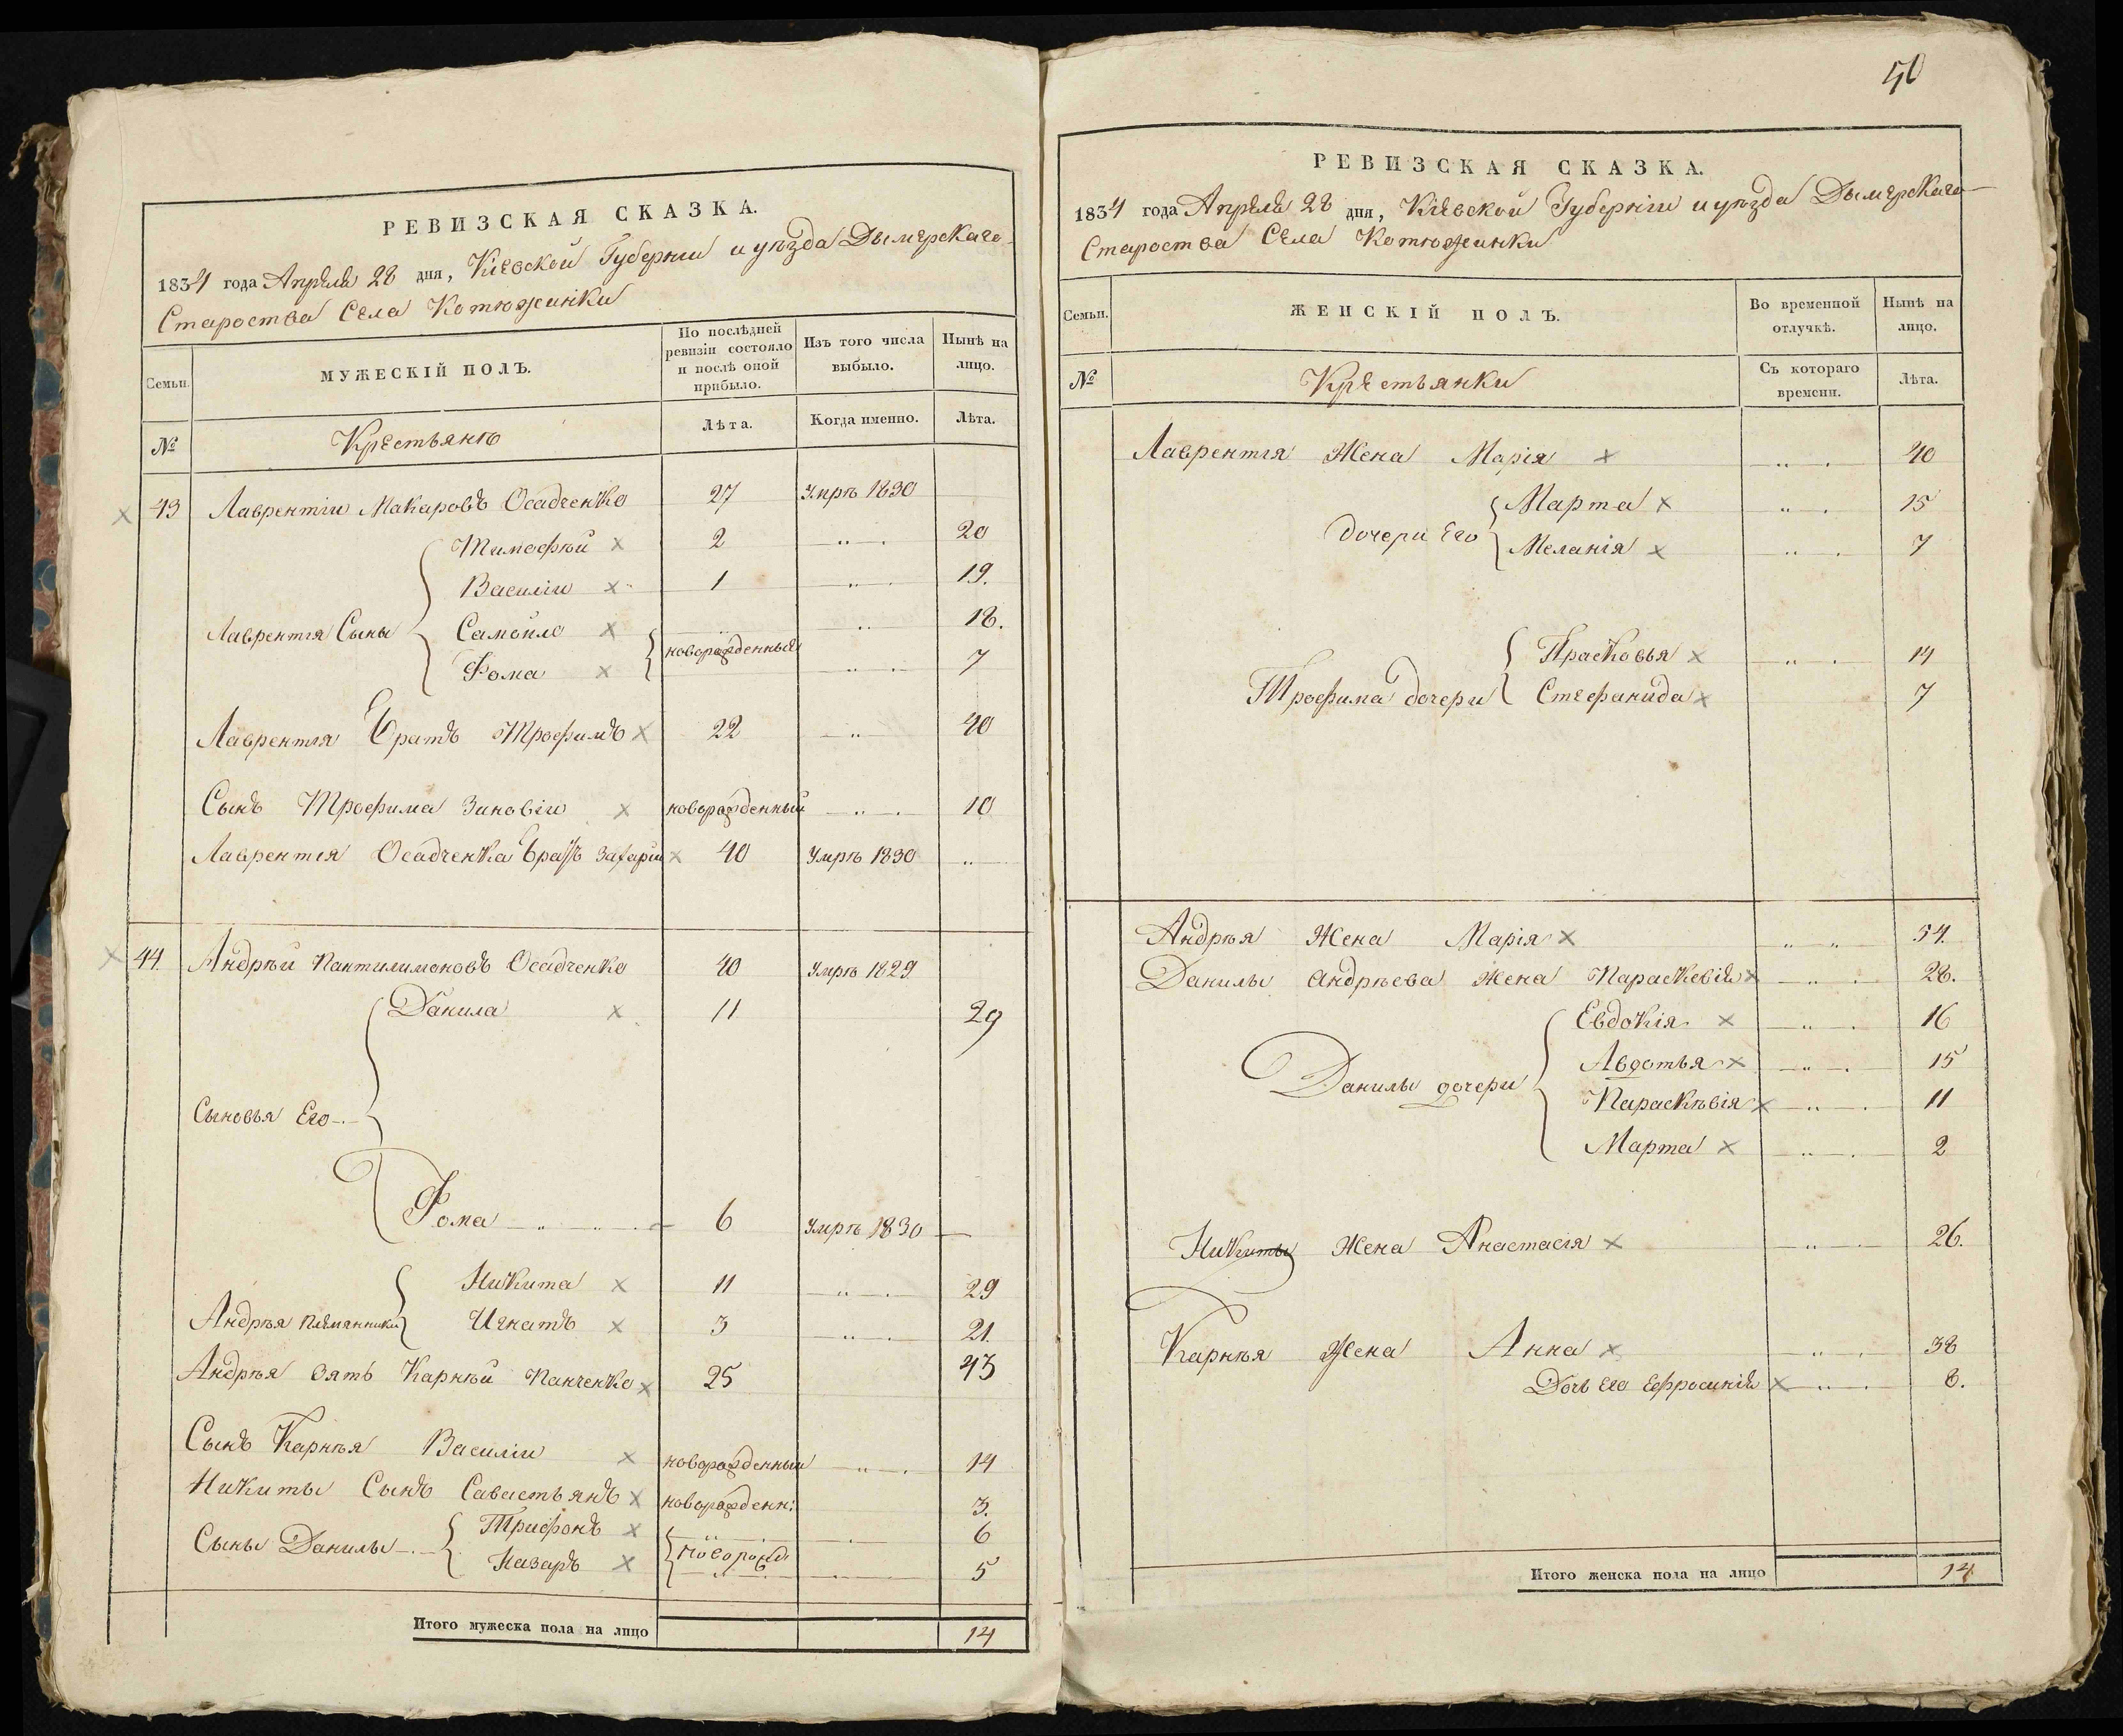 РЕВИЗСКАЯ СКАЗКА.
1834 года Апреля 28 дня, Кіевской Губерніи и уѣзда Дымерскаго
Староства Села Котюжинки
Семьи. МУЖЕСКІЙ ПОЛЪ. По послѣдней ревизіи состояло и послѣ оной прибыло. Изъ того числа выбыло. Нынѣ на лицо.
№ Крестьянѣ Лѣта. Когда именно. Лѣта.
43 Лаврентіи Макаровъ Осадченко 27 Умрѣ 1830
Тимофѣй 2 20
Василіи 1 19.
Лаврентія Сыны Самойло 18.
новорожденныя
Фома 7
Лаврентія братъ Трофимъ 22 40
Сынъ Трофима Зиновіи новорожденный 10
Лаврентія Осадченка братъ Захаріи 40 Умрѣ 1830
44. Андрѣй Пантилимоновъ Осадченко 40 Умрѣ 1829
Данила 11 29
Сыновья Его
Фома 6 Умрѣ 1830
Никита 11 29
Андрѣя племянники Игнатъ 3 21.
Андрѣя зять Карнѣй Панченко 25 43
Сынъ Карнѣя Василіи новорожденный 14
Никиты Сынъ Савастьянъ новорожденн: 3.
Трифонъ 6
Сыны Данилы новорожд
Назаръ 5
Итого мужеска пола на лицо 14
50
РЕВИЗСКАЯ СКАЗКА.
1834 года Апрѣля 28 дня, Кіевской Губерніи и уѣзда Дымерскаго
Староства Села Котюжинки
Семьи. ЖЕНСКІЙ ПОЛЪ. Во временной отлучкѣ. Нынѣ на лицо.
№ Крестьянки Съ котораго времени. Лѣта.
Лаврентія Жена Марія 40
Марта 15
дочери Его Меланія 7
Прасковья 14
Трофима дочери Стефанида 7
Андрѣя Жена Марія 54.
Данилы Андрѣева Жена Параскевія 28.
Евдокія 16
Авдотья 15
Данилы дочери
Параскѣвія 11
Марта 2
Никиты Жена Анастасія 26.
Карнѣя Жена Анна 38
Дочь Его Ефросинія 8.
Итого женска пола на лицо 14